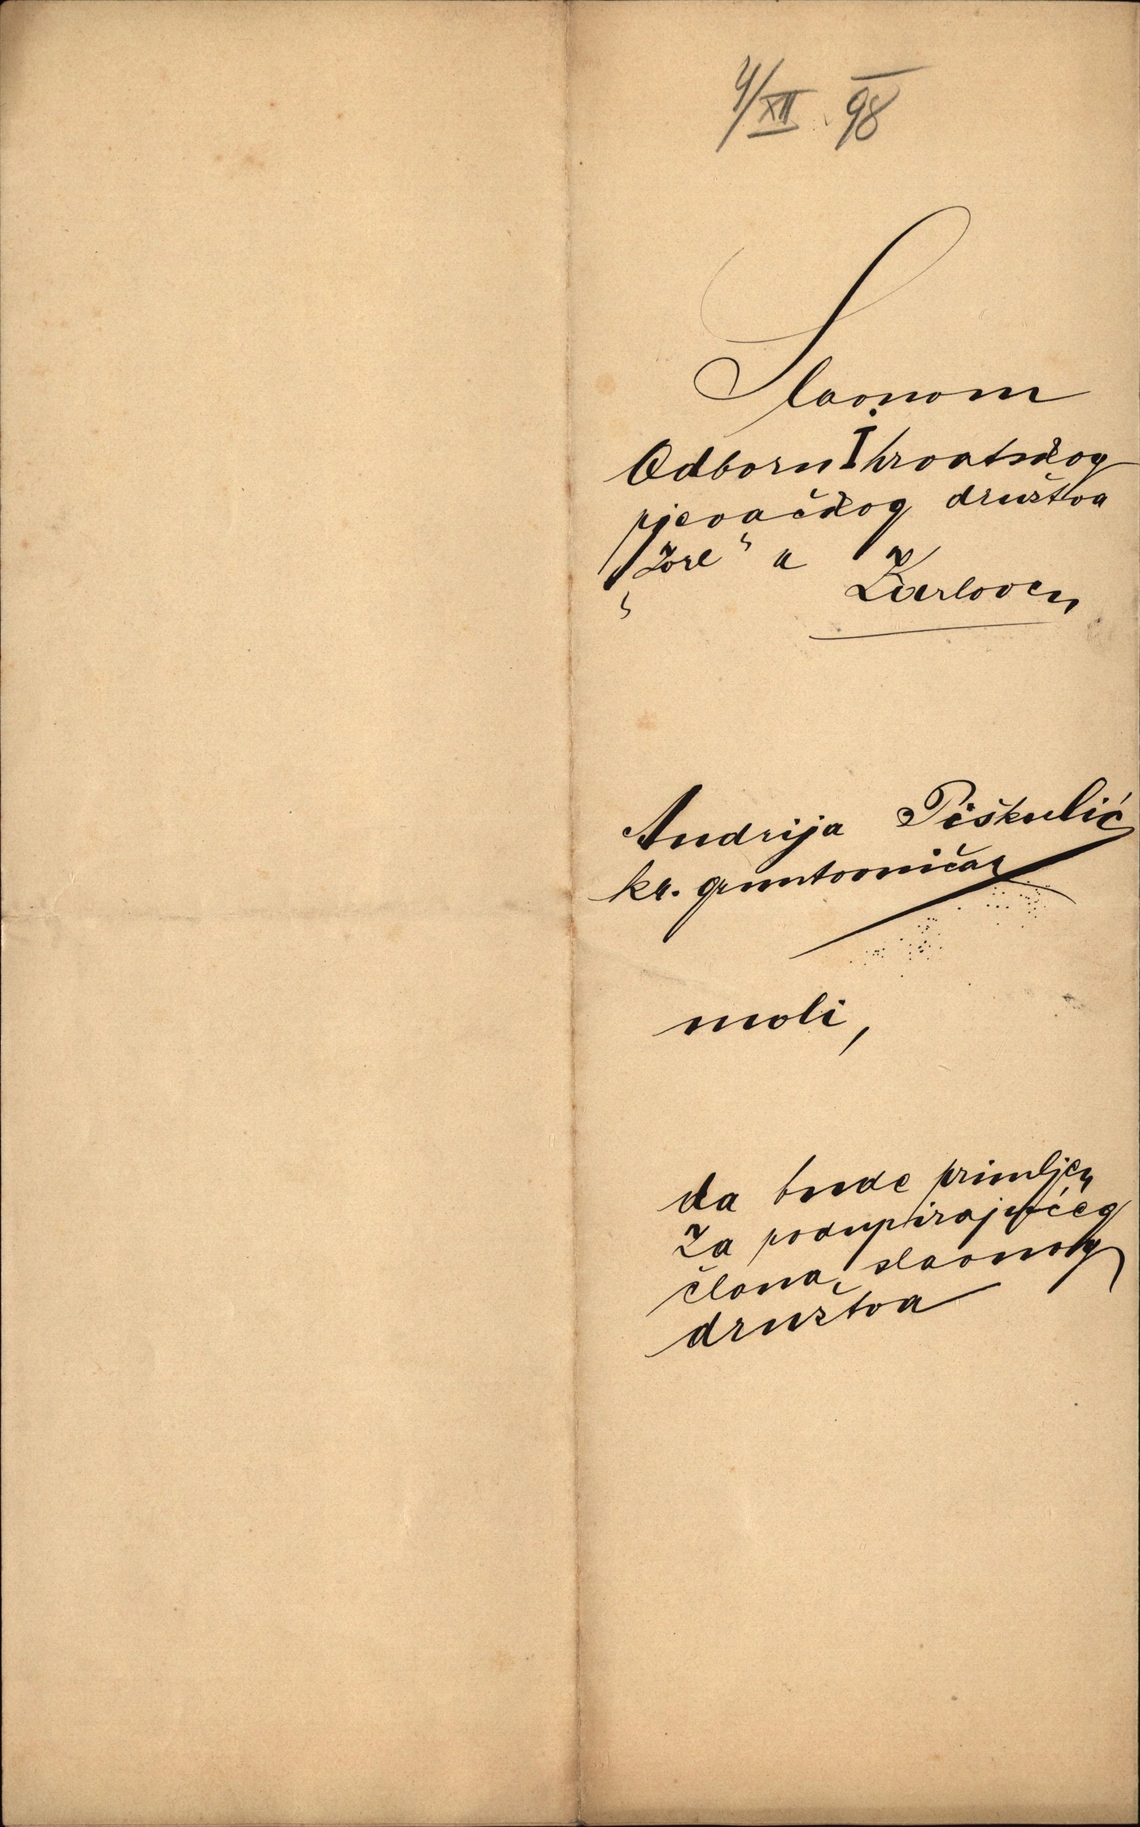 4/XII 98
Slavnom
Odboru I. hrvatskog
pjevačkog družtva
"Zore" u
Karlovcu
Andrija Piškulić
kr. gruntovničar
moli,
da bude primljen
za podupirajućeg
člana slavnog
družtva